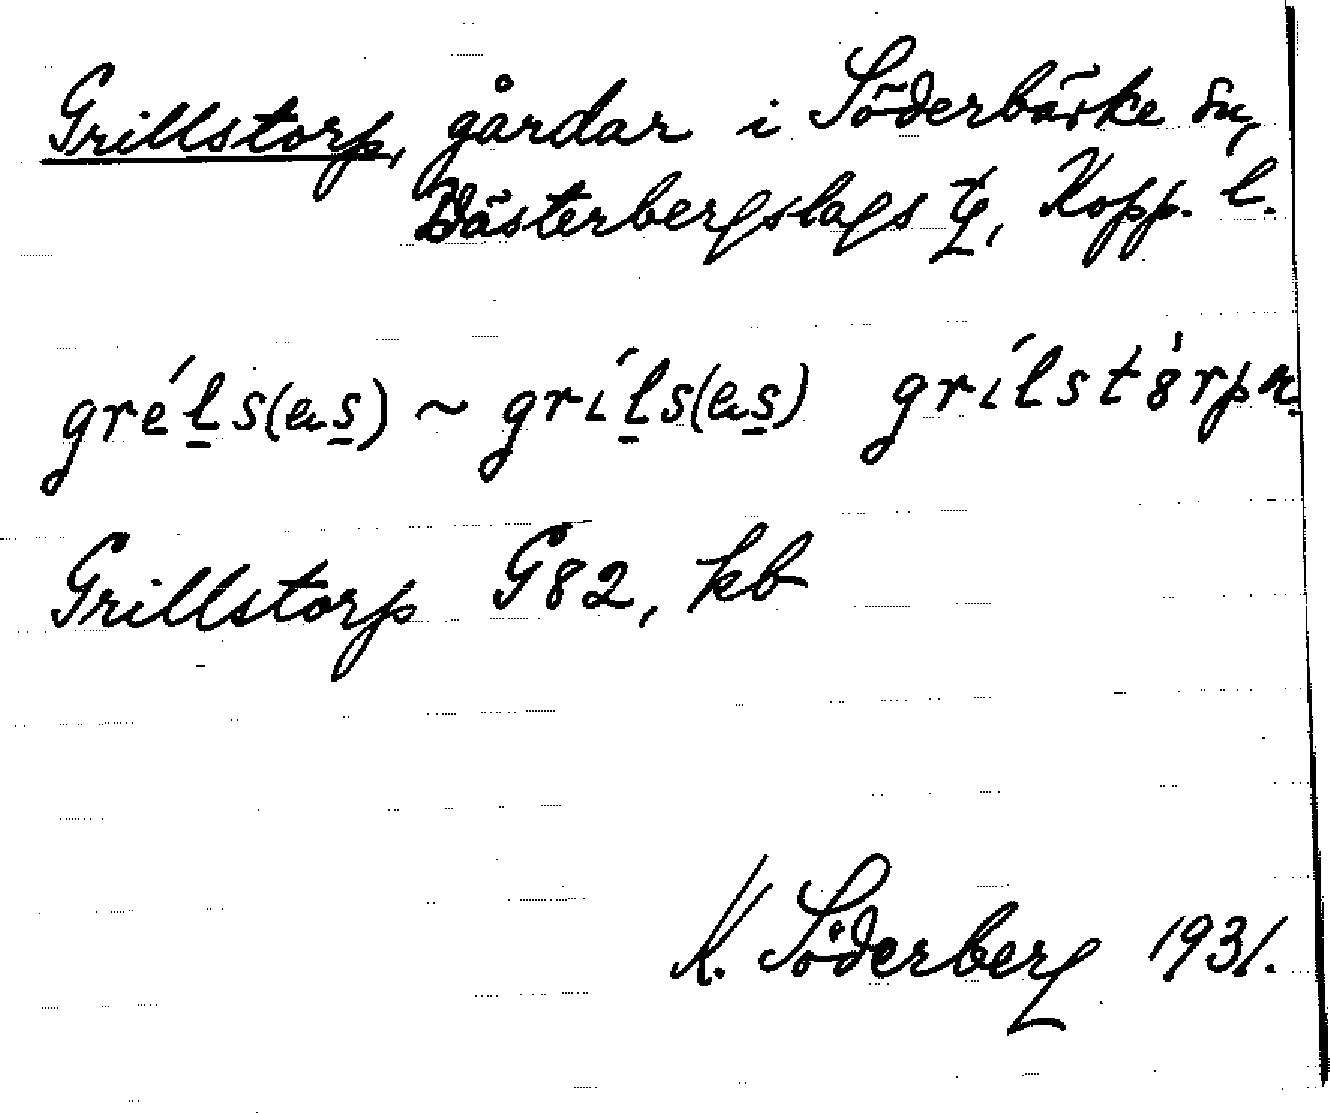 Grillstorp, gårdar i Söderbärke sn,
Västerbergslags tg, Kopp. l.
gréls(as) ~ gríls(as) grílstòrpn
Grillstorp G82, kb
K. Söderberg 1931.